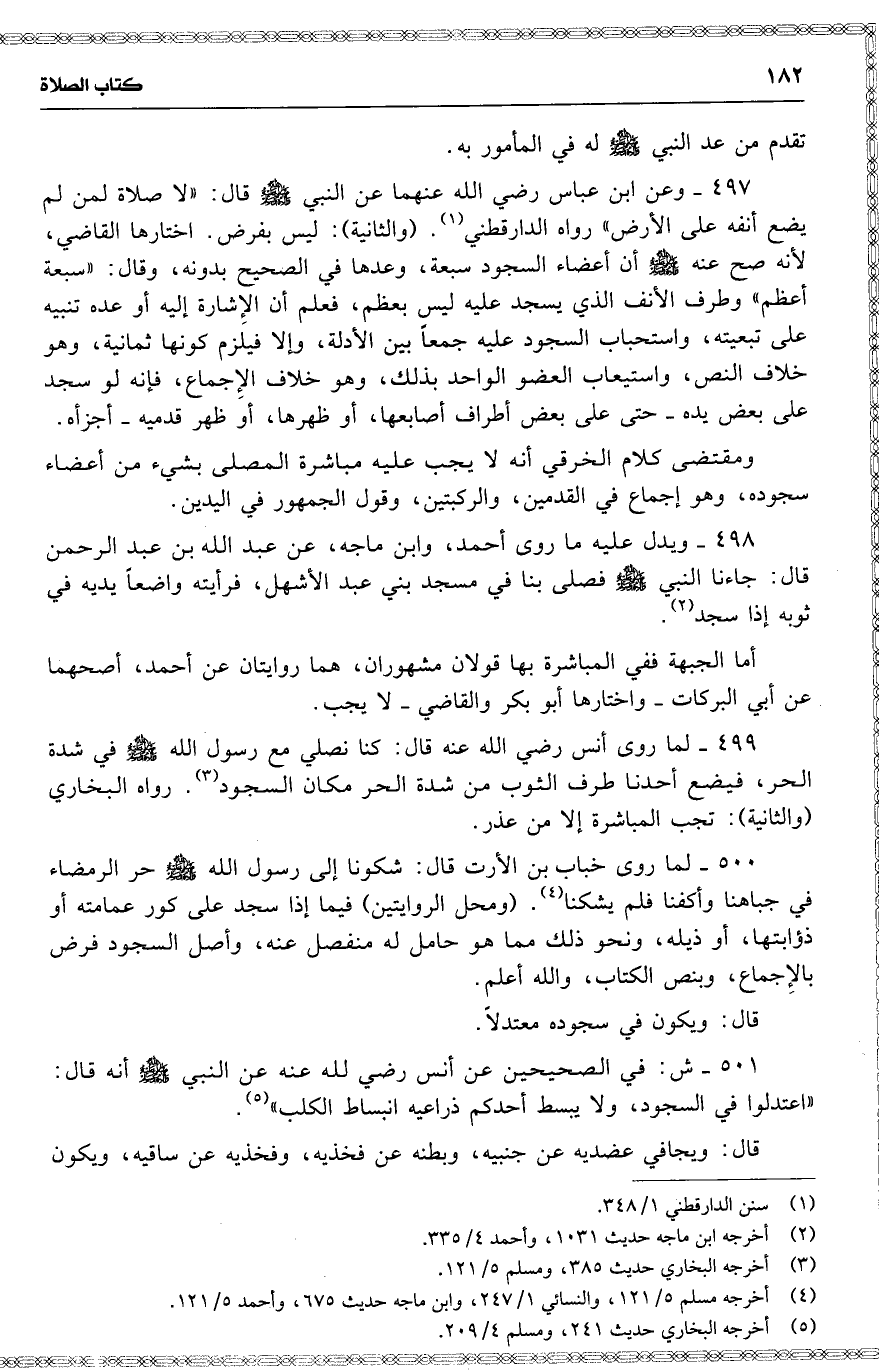 ١٨٢
كتاب الصلاة
تقدم من عد النبي ﷺ له في المأمور به.
٤٩٧ ـ وعن ابن عباس رضي الله عنهما عن النبي ﷺ قال: «لا صلاة لمن لم
يضع أنفه على الأرض» رواه الدارقطني(١). (والثانية): ليس بفرض. اختارها القاضي،
لأنه صح عنه ﷺ أن أعضاء السجود سبعة، وعدها في الصحيح بدونه، وقال: «سبعة
أعظم» وطرف الأنف الذي يسجد عليه ليس بعظم، فعلم أن الإشارة إليه أو عده تنبيه
على تبعيته، واستحباب السجود عليه جمعاً بين الأدلة، وإلا فيلزم كونها ثمانية، وهو
خلاف النص، واستيعاب العضو الواحد بذلك، وهو خلاف الإجماع، فإنه لو سجد
على بعض يده ـ حتى على بعض أطراف أصابعها، أو ظهرها، أو ظهر قدميه ـ أجزأه.
ومقتضى كلام الخرقي أنه لا يجب عليه مباشرة المصلى بشيء من أعضاء
سجوده، وهو إجماع في القدمين، والركبتين، وقول الجمهور في اليدين.
٤٩٨ ـ ويدل عليه ما روى أحمد، وابن ماجه، عن عبد الله بن عبد الرحمن
قال: جاءنا النبي ﷺ فصلى بنا في مسجد بني عبد الأشهل، فرأيته واضعاً يديه في
ثوبه إذا سجد(٢).
أما الجبهة ففي المباشرة بها قولان مشهوران، هما روايتان عن أحمد، أصحهما
عن أبي البركات ـ واختارها أبو بكر والقاضي ـ لا يجب.
٤٩٩ ـ لما روى أنس رضي الله عنه قال: كنا نصلي مع رسول الله ﷺ في شدة
الحر، فيضع أحدنا طرف الثوب من شدة الحر مكان السجود(٣). رواه البخاري
(والثانية): تجب المباشرة إلا من عذر.
٥٠٠ ـ لما روى خباب بن الأرت قال: شكونا إلى رسول الله ﷺ حر الرمضاء
في جباهنا وأكفنا فلم يشكنا(٤). (ومحل الروايتين) فيما إذا سجد على كور عمامته أو
ذؤابتها، أو ذيله، ونحو ذلك مما هو حامل له منفصل عنه، وأصل السجود فرض
بالإجماع، وبنص الكتاب، والله أعلم.
قال: ويكون في سجوده معتدلاً.
٥٠١ ـ ش: في الصحيحين عن أنس رضي لله عنه عن النبي ﷺ أنه قال:
«اعتدلوا في السجود، ولا يبسط أحدكم ذراعيه انبساط الكلب»(٥).
قال: ويجافي عضديه عن جنبيه، وبطنه عن فخذيه، وفخذيه عن ساقيه، ويكون
(١) سنن الدارقطني ٣٤٨/١.
(٢) أخرجه ابن ماجه حديث ١٠٣١، وأحمد ٣٣٥/٤.
(٣) أخرجه البخاري حديث ٣٨٥، ومسلم ١٢١/٥.
(٤) أخرجه مسلم ١٢١/٥، والنسائي ٢٤٧/١، وابن ماجه حديث ٦٧٥، وأحمد ١٢١/٥.
(٥) أخرجه البخاري حديث ٢٤١، ومسلم ٢٠٩/٤.